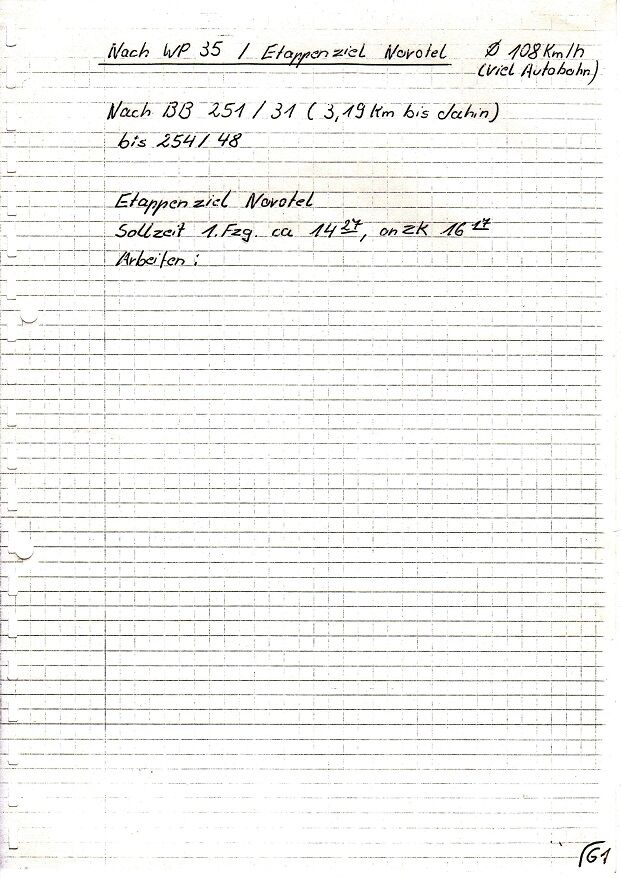 Nach WP 35 / Etappenziel Novotel Ø 108 Km/h
(viel Autobahn)
Nach BB 251 / 31 ( 3,19 Km bis dahin)
bis 254 / 48
Etappenziel Novotel
Sollzeit 1. Fzg. ca 14 27, an ZK 16 17
Arbeiten :
61